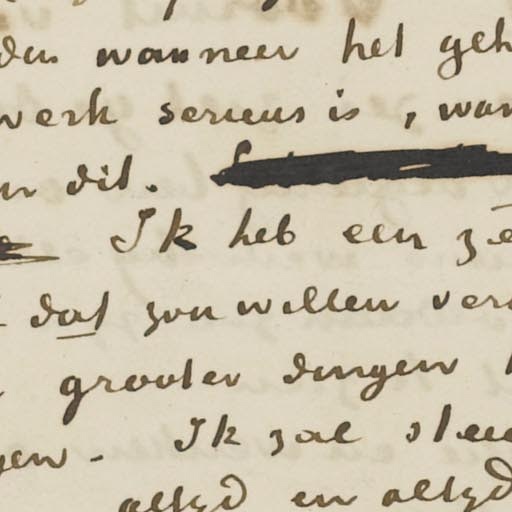 den wanneer het geh
werk serieus is, wan
n dit.
Ik heb een ze
dat zou willen vers
grooter dingen
gen. Ik zal stee
altyd en altyd